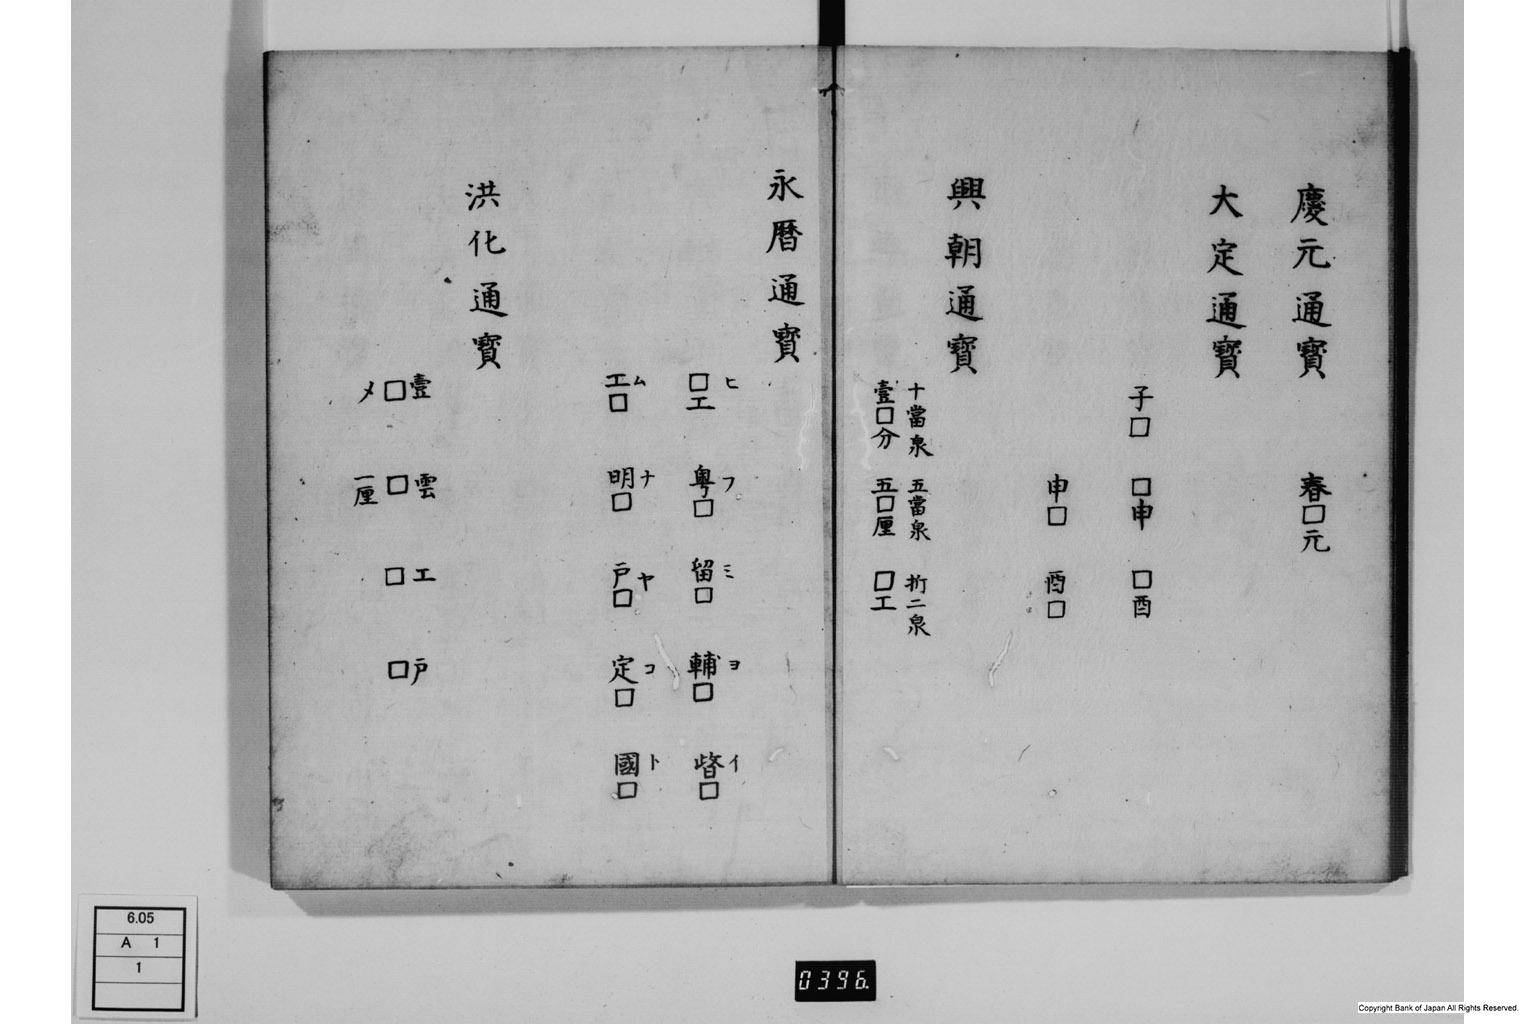 慶元通寳
春□元
大定通寳
子□　□申　□酉
申□　酉□
興朝通寳
十當泉　五當泉　折二泉
壹□分　五□厘　□工
永暦通寳
ヒ　フ　ミ　ヨ　イ
□工　粤□　留□　輔□　□
ム　ナ　ヤ　コ　ト
工□　明□　戸□　定□　國□
洪化通寳
壹　雲　工　戸
□　□　□　□
一厘
6.05
A 1
1
0396.
Copyright Bank of Japan All Rights Reserved.